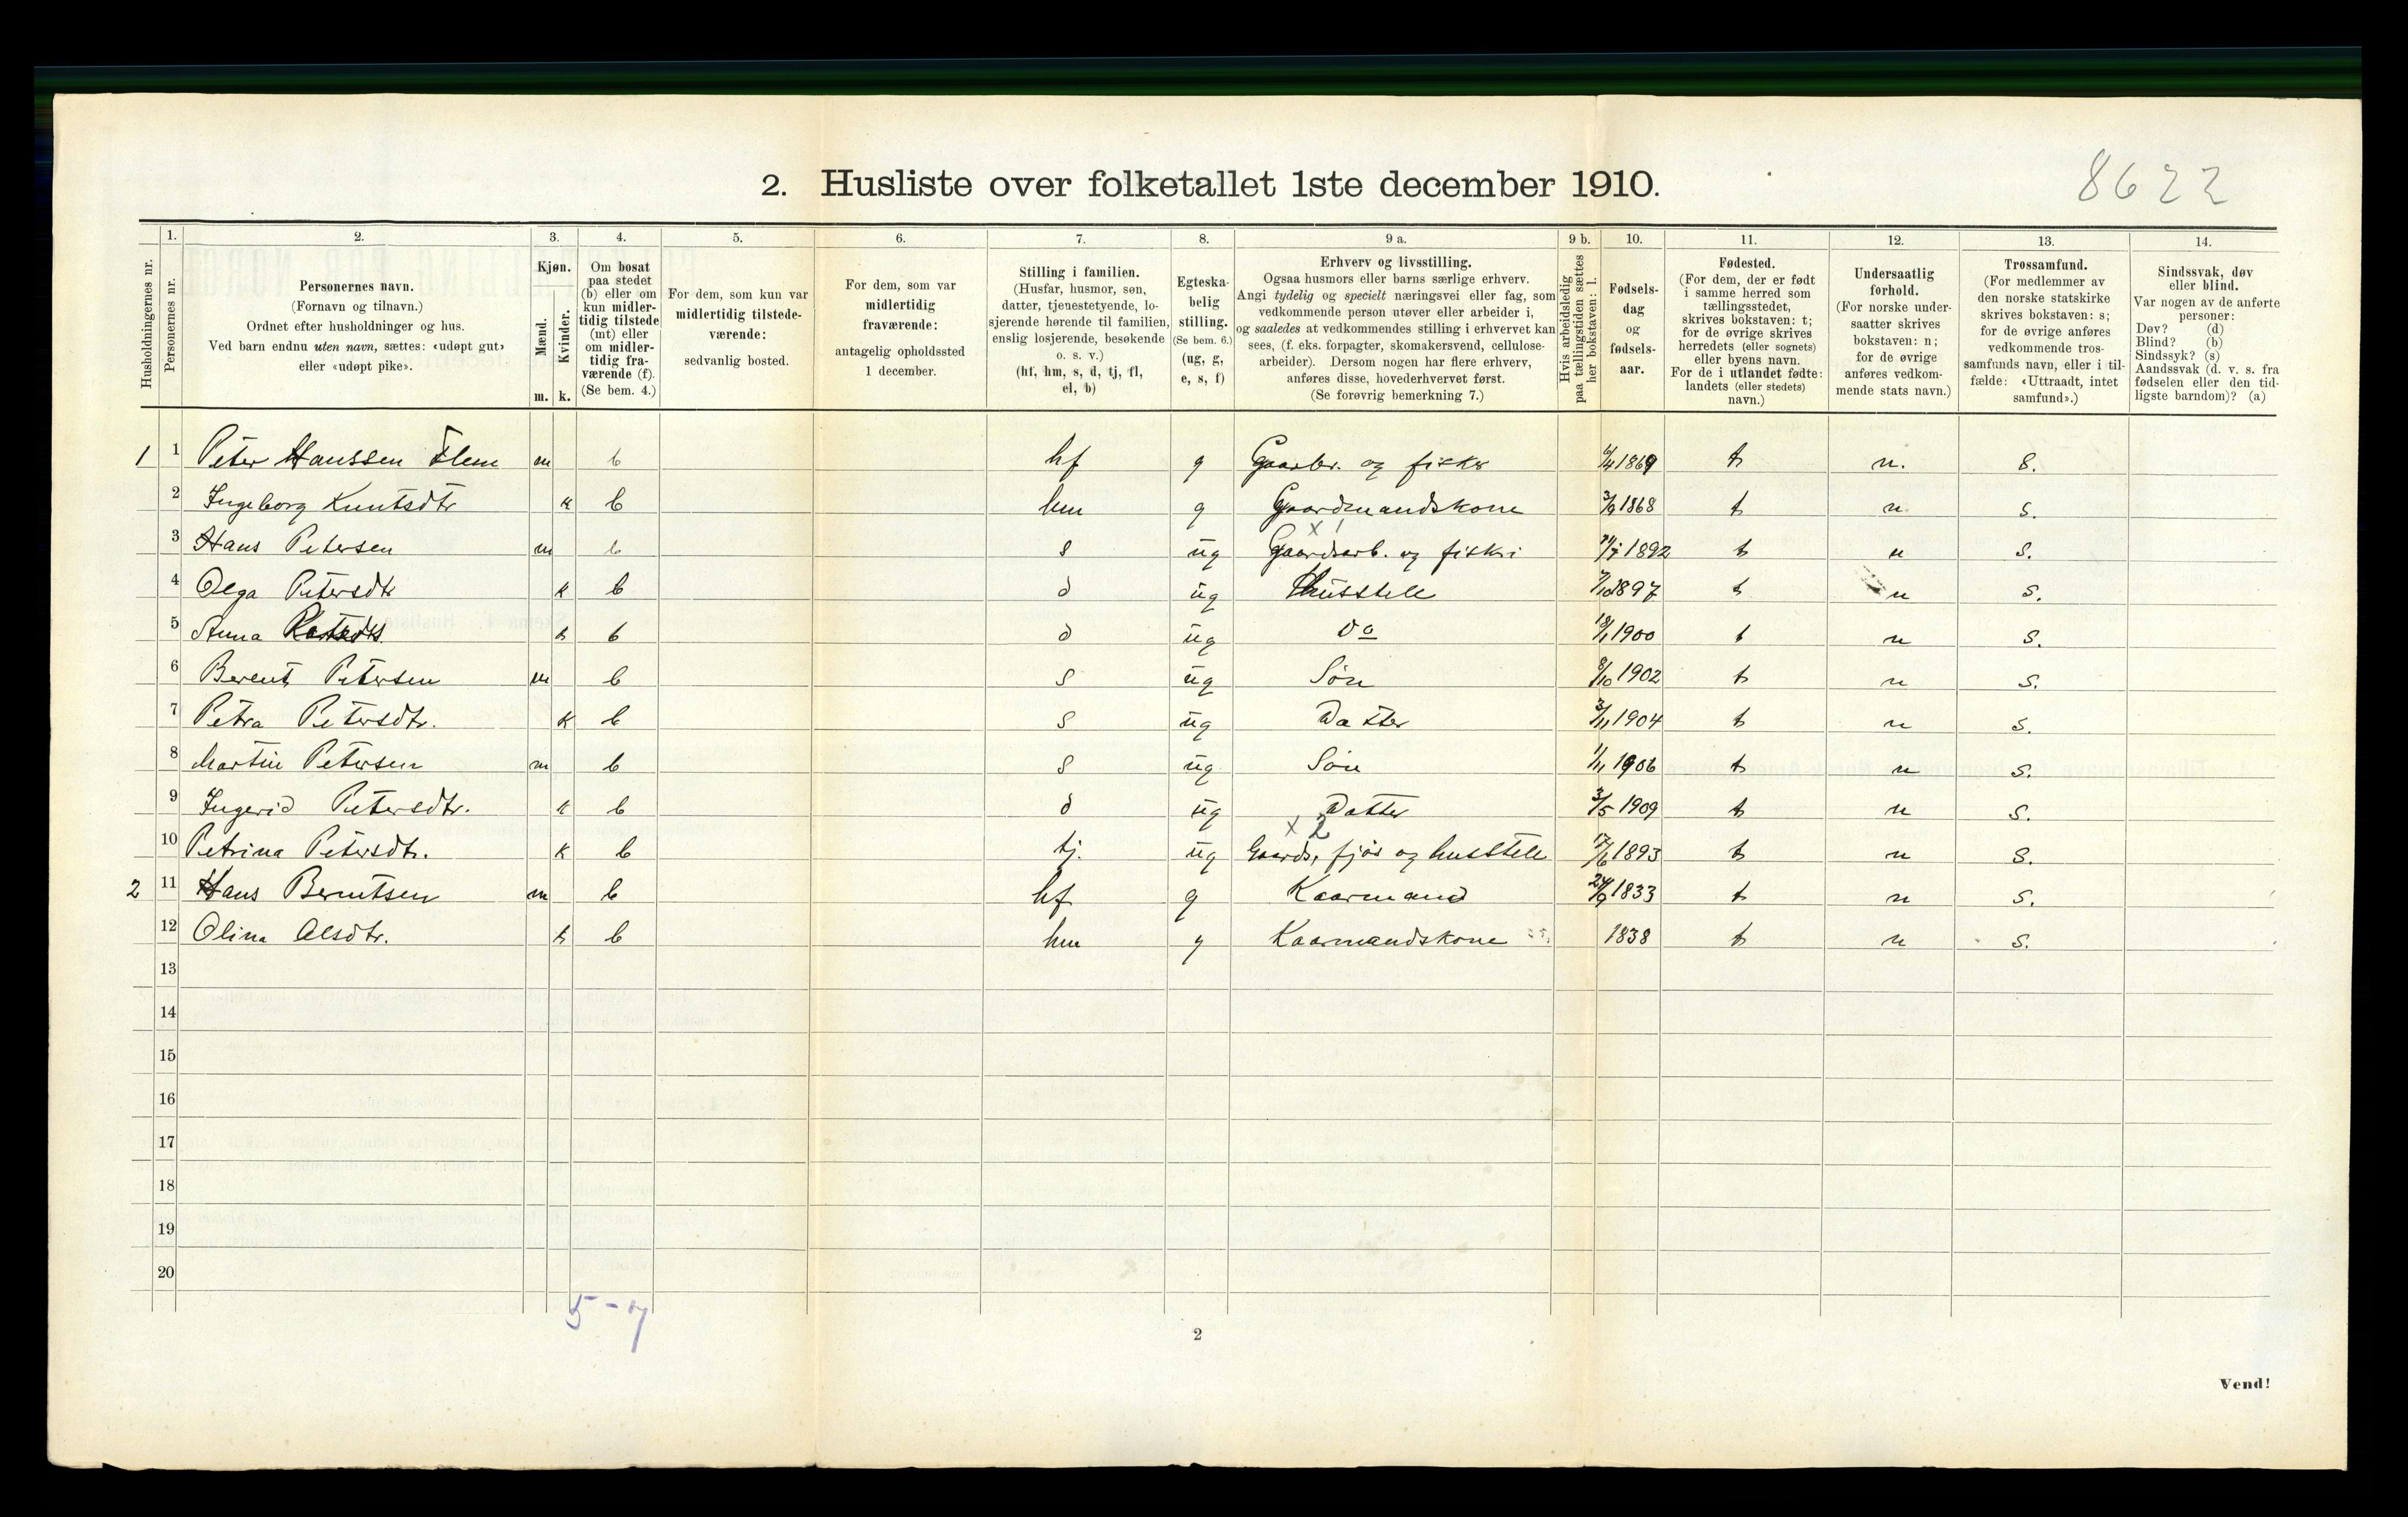 8622
2. Husliste over folketallet 1ste december 1910.
Husholdningernes nr.
1. Personernes nr.
2. Personernes navn. (Fornavn og tilnavn.) Ordnet efter husholdninger og hus. Ved barn endnu uten navn, sættes: «udøpt gut» eller «udøpt pike».
3. Kjøn. Mænd. m. Kvinder. k.
4. Om bosat paa stedet (b) eller om kun midlertidig tilstede (mt) eller om midlertidig fraværende (f). (Se bem. 4.)
5. For dem, som kun var midlertidig tilstedeværende: sedvanlig bosted.
6. For dem, som var midlertidig fraværende: antagelig opholdssted 1 december.
7. Stilling i familien. (Husfar, husmor, søn, datter, tjenestetyende, losjerende hørende til familien, enslig losjerende, besøkende o. s. v.) (hf, hm, s, d, tj, fl, el, b)
8. Egteskabelig stilling. (Se bem. 6.) (ug, g, e, s, f)
9 a. Erhverv og livsstilling. Ogsaa husmors eller barns særlige erhverv. Angi tydelig og specielt næringsvei eller fag, som vedkommende person utøver eller arbeider i, og saaledes at vedkommendes stilling i erhvervet kan sees, (f. eks. forpagter, skomakersvend, cellulosearbeider). Dersom nogen har flere erhverv, anføres disse, hovederhvervet først. (Se forøvrig bemerkning 7.)
9 b. Hvis arbeidsledig paa tællingstiden sættes her bokstaven: l.
10. Fødselsdag og fødselsaar.
11. Fødested. (For dem, der er født i samme herred som tællingsstedet, skrives bokstaven: t; for de øvrige skrives herredets (eller sognets) eller byens navn. For de i utlandet fødte: landets (eller stedets) navn.)
12. Undersaatlig forhold. (For norske undersaatter skrives bokstaven: n; for de øvrige anføres vedkommende stats navn.)
13. Trossamfund. (For medlemmer av den norske statskirke skrives bokstaven: s; for de øvrige anføres vedkommende trossamfunds navn, eller i tilfælde: «Uttraadt, intet samfund».)
14. Sindssvak, døv eller blind. Var nogen av de anførte personer: Døv? (d) Blind? (b) Sindssyk? (s) Aandssvak (d. v. s. fra fødselen eller den tidligste barndom)? (a)
1 1 Peter Hanssen Flem m b hf g Gaarbr. og fisker 6/4 1869 t n. s.
2 Ingeborg Knutsdtr k b hm g Gaardmandskone 3/9 1868 t n s.
x 1
3 Hans Petersen m b s ug Gaardsarb. og fiskri 1892 t n s.
4 Olga Petersdtr k b d ug Husstell 7/10 1897 t n s.
5 Anna k b d ug do 18/1 1900 t n s.
6 Berent Petersen m b s ug Søn 8/10 1902 t n s.
7 Petra Petersdtr. k b s ug Datter 3/11 1904 t n s.
8 Martin Petersen m b s ug Søn 1/11 1906 t n s.
9 Ingerid Petersdtr. k b d ug Datter 3/5 1909 t n s.
x 2
10 Petrina Petersdtr. k b tj. ug Gaards, fjøs og husstell 17/6 1893 t n s.
2 11 Hans Berntsen m b hf g Kaarmand 24/9 1833 t n s.
12 Olina Olsdtr. k b hm g Kaarmandskone 1838 t n s.
13
14
15
16
17
18
19
20
5-7
2
Vend!